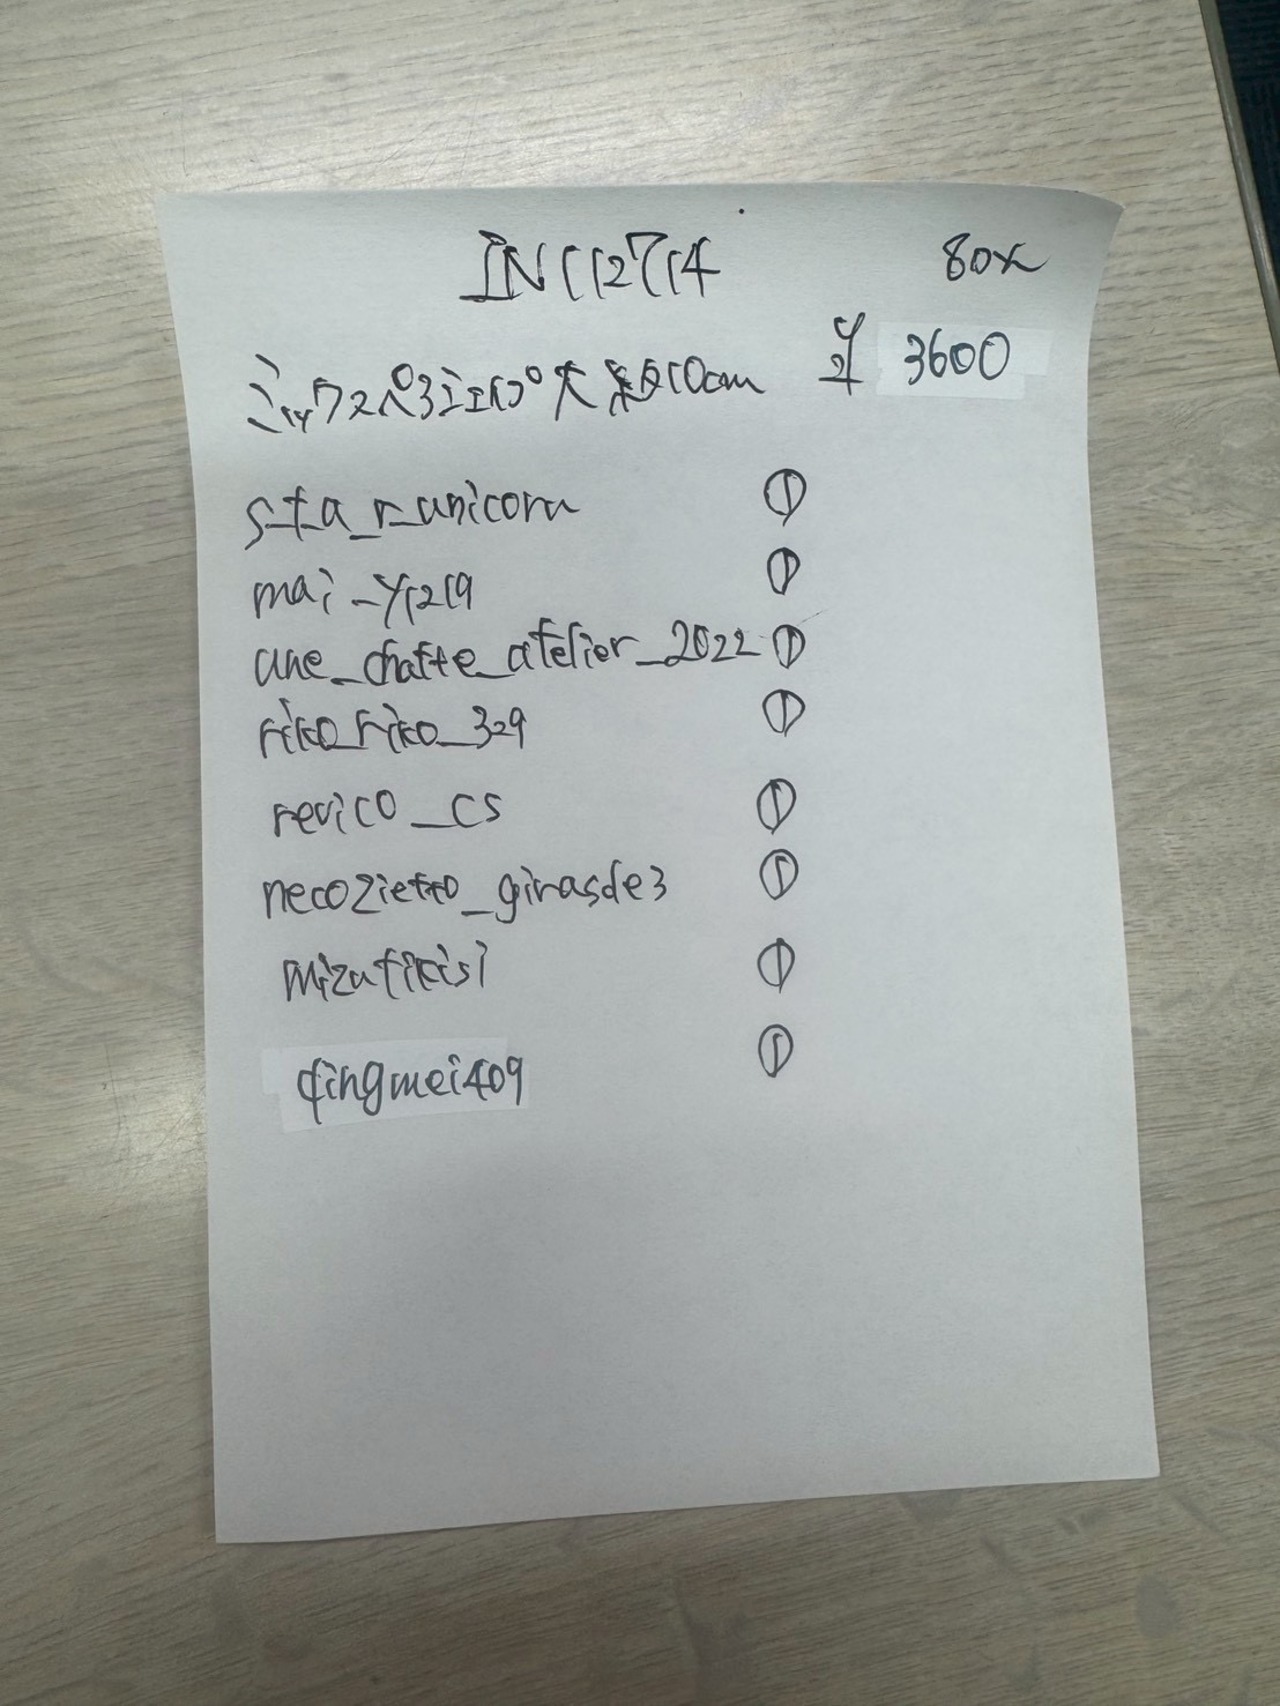 IN112714 80x
10cm ¥ 3600
s_t_a_r_unicorn ①
mai_y1219 ①
une_chatte_atelier_2022 ①
riko_riko_329 ①
revico_cs ①
necozietto_girasole3 ①
mizutikisi ①
qingmei409 ①